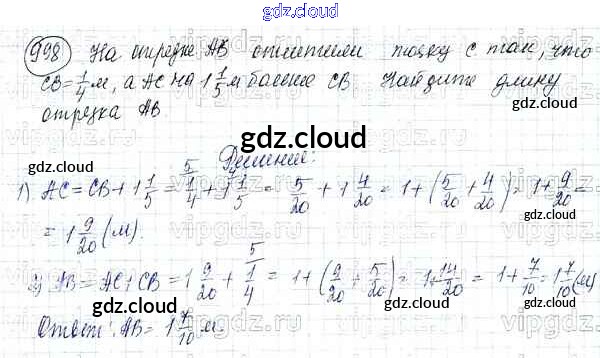 gdz.cloud
998 На отрезке AB отметили точку C так, что
CB = 1/4 м, а AC на 1 1/5 м больше CB. Найдите длину
отрезка AB
gdz.cloud
Решение:
gdz.cloud
1) AC = CB + 1 1/5 = 1/4 + 1 1/5 = 5/20 + 1 4/20 = 1 + (5/20 + 4/20) = 1 + 9/20 =
= 1 9/20 (м).
2) AB = AC + CB = 1 9/20 + 1/4 = 1 + (9/20 + 5/20) = 1 + 14/20 = 1 + 7/10 = 1 7/10 (м)
gdz.cloud gdz.cloud
Ответ: AB = 1 7/10 м.
gdz.cloud